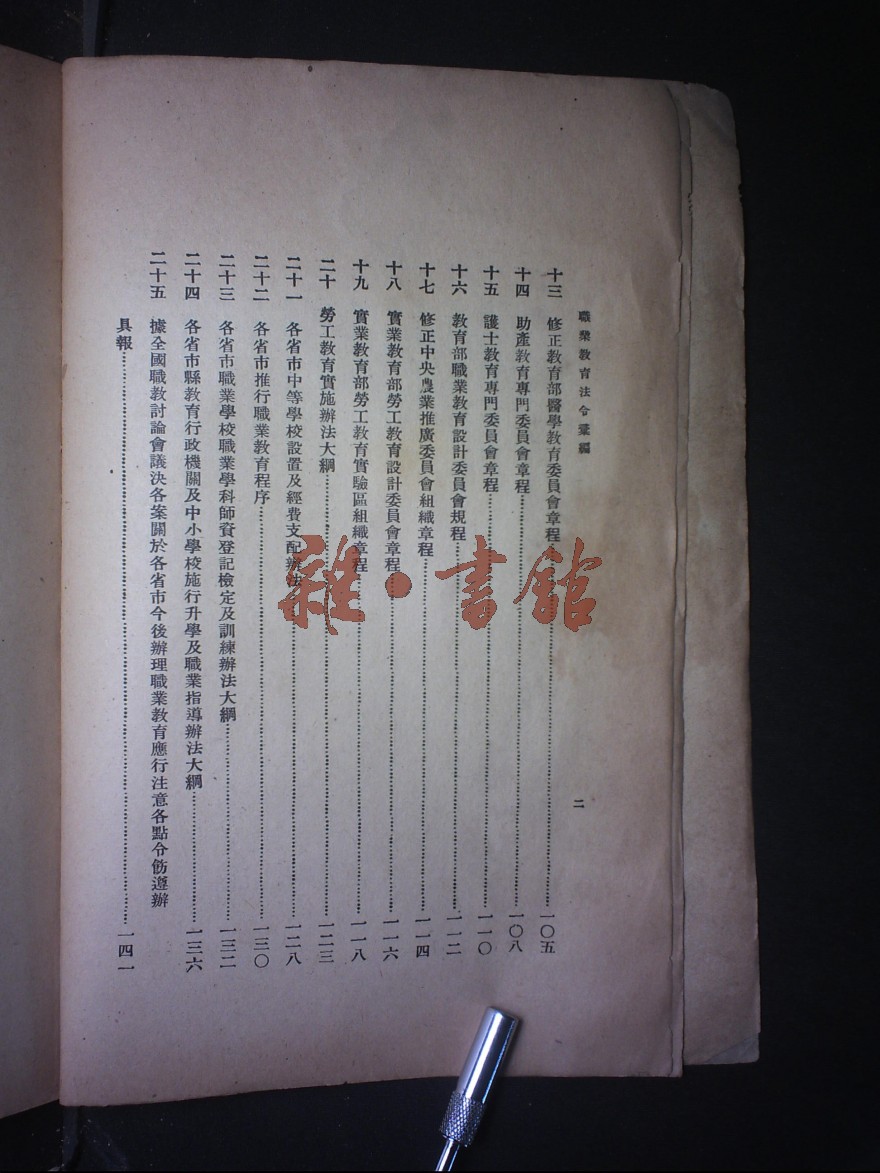 職業教育法令彙編
二
十三 修正教育部醫學教育委員會章程……一〇五
十四 助產教育專門委員會章程……一〇八
十五 護士教育專門委員會章程……一一〇
十六 教育部職業教育設計委員會規程……一一二
十七 修正中央農業推廣委員會組織章程……一一四
十八 實業教育部勞工教育設計委員會章程……一一六
十九 實業教育部勞工教育實驗區組織章程……一一八
二十 勞工教育實施辦法大綱……一二三
二十一 各省市中等學校設置及經費支配辦法……一二八
二十二 各省市推行職業教育程序……一三〇
二十三 各省市職業學校職業學科師資登記檢定及訓練辦法大綱……一三二
二十四 各省市縣教育行政機關及中小學校施行升學及職業指導辦法大綱……一三六
二十五 據全國職教討論會議決各案關於各省市今後辦理職業教育應行注意各點令飭遵辦
具報……一四一
雜·書館